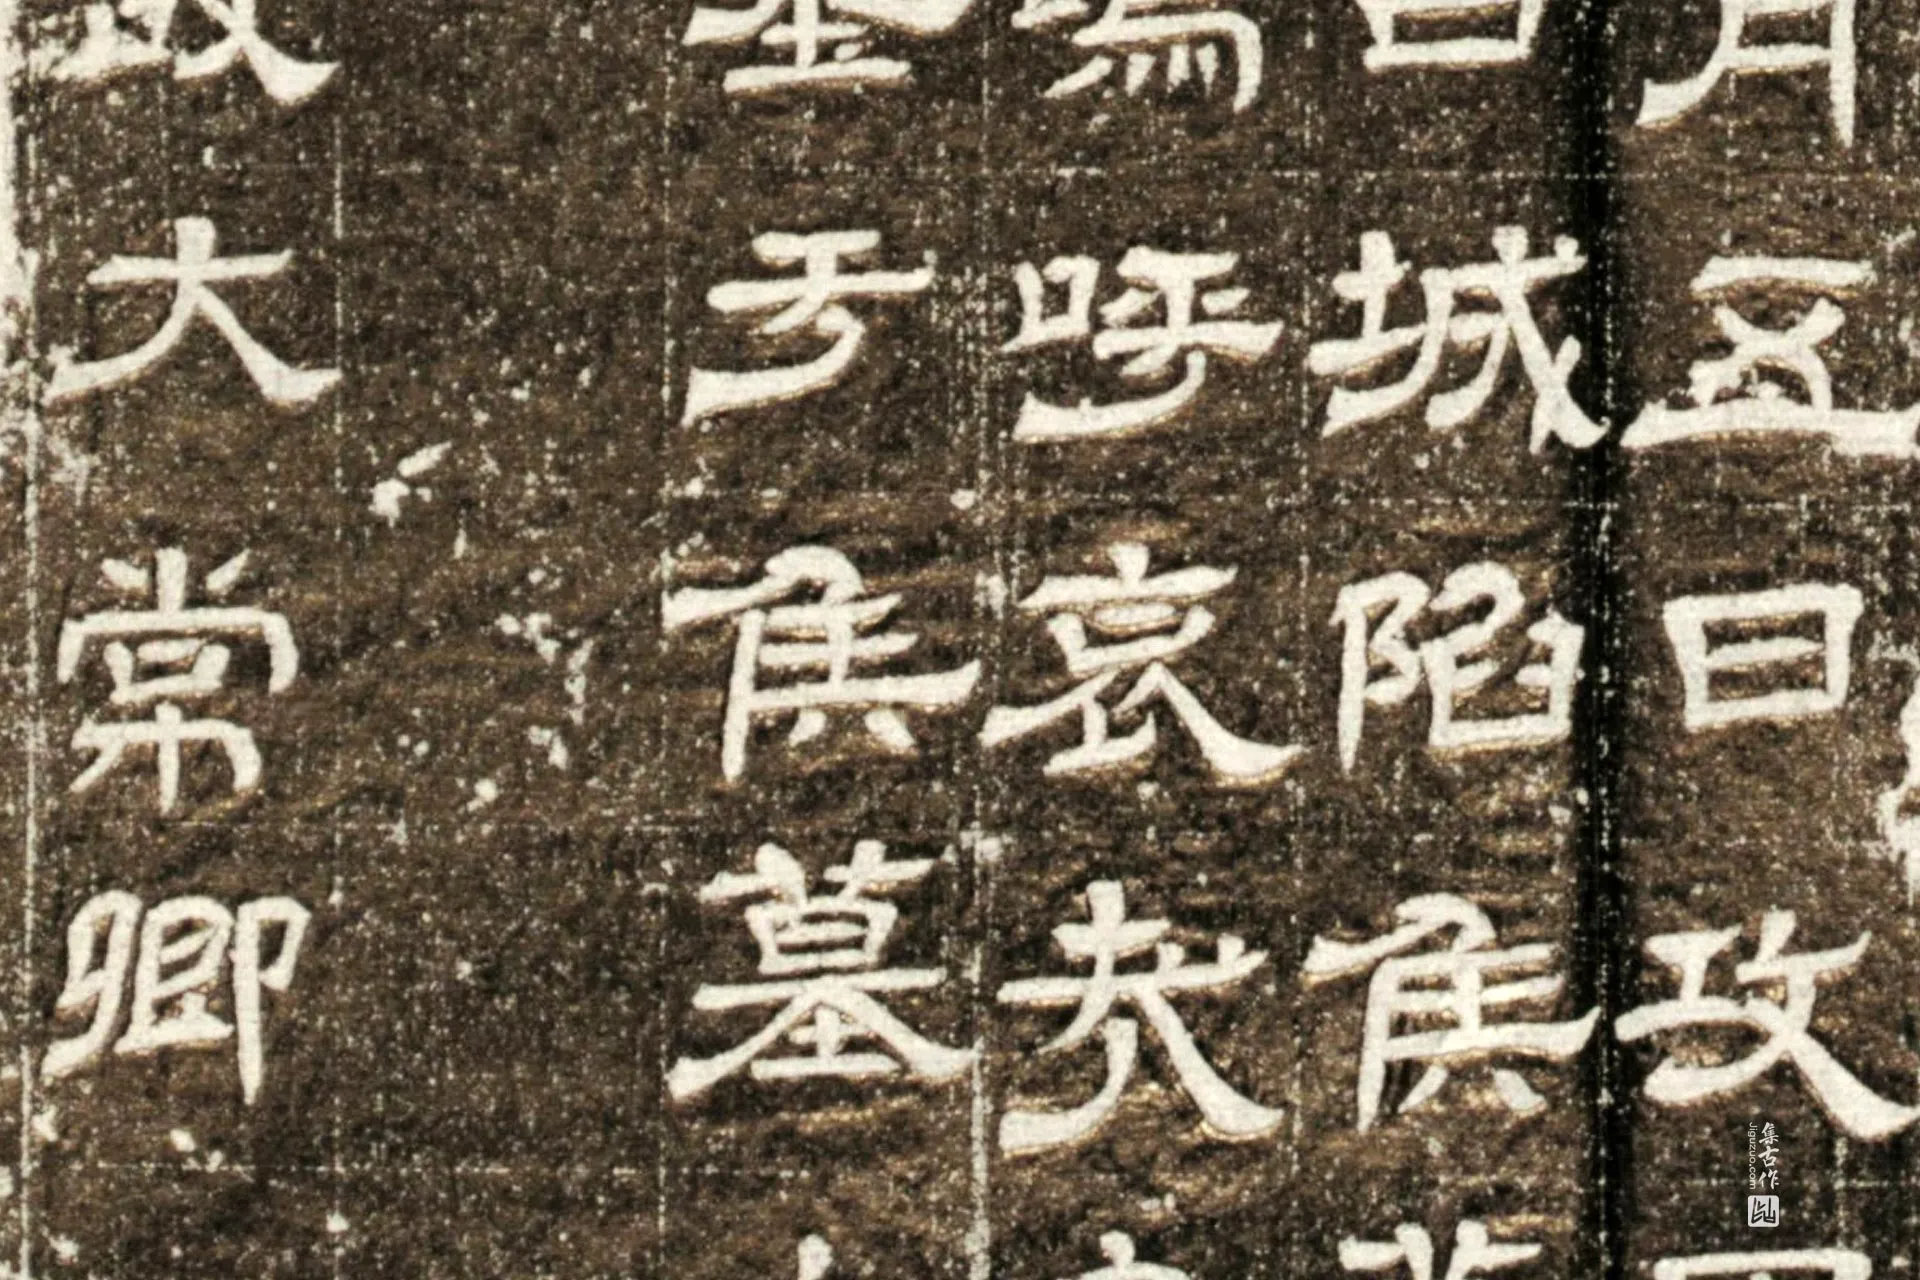 月五日攻
城陷侯
呼哀哉
于侯墓
大常卿
集古作
Jiguzuo.com